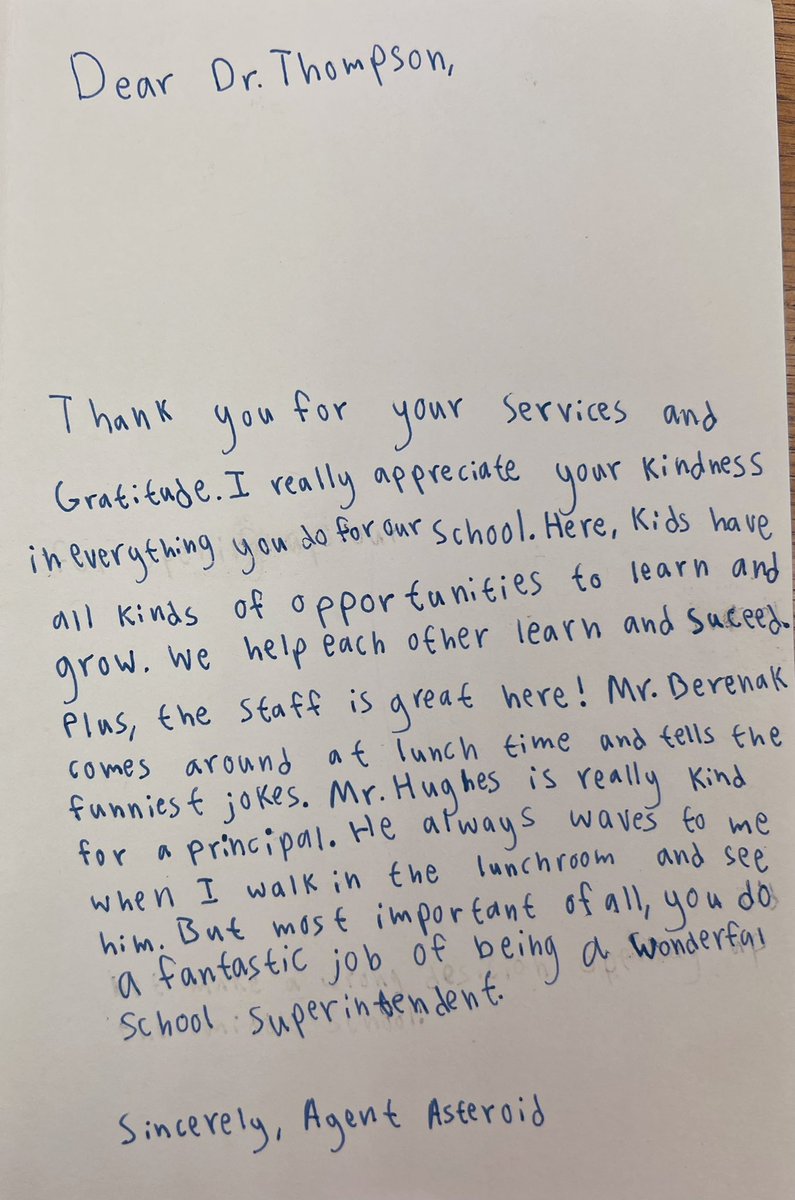 Dear Dr. Thompson,
Thank you for your services and
Gratitude. I really appreciate your kindness
in everything you do for our school. Here, kids have
all kinds of opportunities to learn and
grow. We help each other learn and suceed.
Plus, the staff is great here! Mr. Berenak
comes around at lunch time and tells the
funniest jokes. Mr. Hughes is really kind
for a principal. He always waves to me
when I walk in the lunchroom and see
him. But most important of all, you do
a fantastic job of being a wonderful
school superintendent.
Sincerely, Agent Asteroid